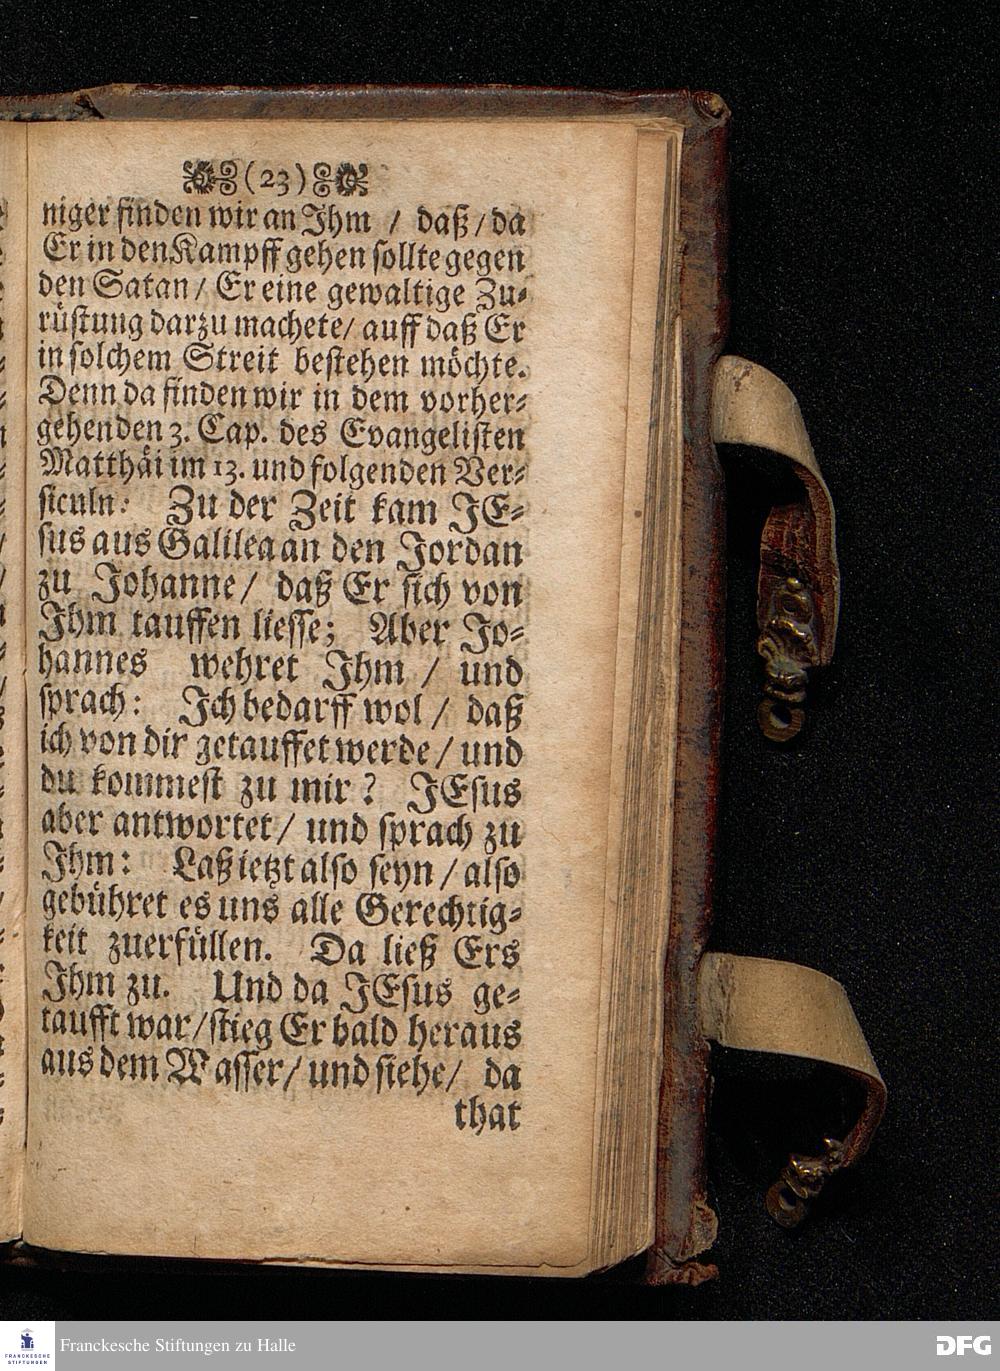 (23)
niger finden wir an Ihm / daß / da
Er in den Kampff gehen sollte gegen
den Satan / Er eine gewaltige Zu-
rüstung darzu machete / auff daß Er
in solchem Streit bestehen möchte.
Denn da finden wir in dem vorher-
gehenden 3. Cap. des Evangelisten
Matthäi im 13. und folgenden Ver-
siculn: Zu der Zeit kam JE-
sus aus Galilea an den Jordan
zu Johanne / daß Er sich von
Ihm tauffen liesse; Aber Jo-
hannes wehret Ihm / und
sprach: Ich bedarff wol / daß
ich von dir getauffet werde / und
du kommest zu mir? JEsus
aber antwortet / und sprach zu
Ihm: Laß ietzt also seyn / also
gebühret es uns alle Gerechtig-
keit zuerfüllen. Da ließ Ers
Ihm zu. Und da JEsus ge-
taufft war / stieg Er bald heraus
aus dem Wasser / und siehe / da
that
FRANCKESCHE
STIFTUNGEN
Franckesche Stiftungen zu Halle
DFG